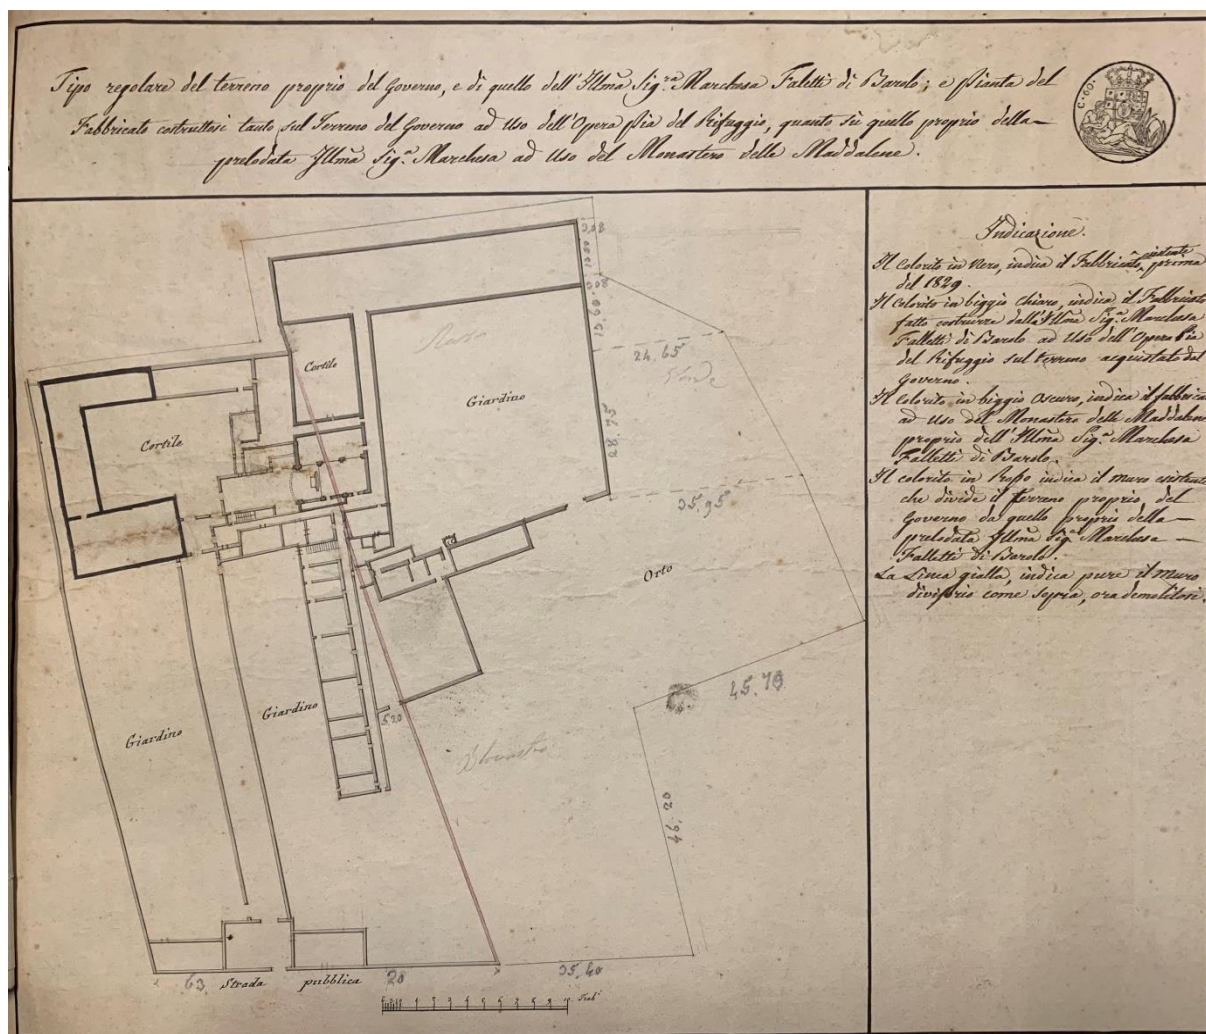 Tipo regolare del terreno proprio del Governo, e di quello dell'Illma Sig.ra Marchesa Faletti di Barolo; e Pianta del
Fabbricato costruttosi tanto sul Terreno del Governo ad Uso dell'Opera Pia del Rifuggio, quanto sù quello proprio della
prelodata Illma Sig.a Marchesa ad Uso del Monastero delle Maddalene.
C. 60.
Indicazione.
Il Colorito in Nero, indica il Fabbricato, esistente prima
del 1829.
Il Colorito in biggio chiaro, indica il Fabbricato
fatto costruire dall'Illma Sig.a Marchesa
Falletti di Barolo ad Uso dell'Opera Pia
del Rifuggio sul terreno acquistato dal
Governo.
Il Colorito in biggio oscuro, indica il fabbrica
ad uso del Monastero delle Maddalene
proprio dell'Illma Sig.a Marchesa
Falletti di Barolo.
Il colorito in Rosso indica il muro esistente
che divide il terreno proprio del
Governo da quello proprio della
prelodata Illma Sig.a Marchesa
Falletti di Barolo.
La Linea gialla, indica pure il muro
divisorio come sopra, ora demolitosi.
10.50
15.60
Cortile
24.65
Verde
Giardino
28.75
Cortile
35.95
Orto
45.70
Giardino
5.20
Giardino
46.20
63. Strada pubblica 20
35.40
Trab.